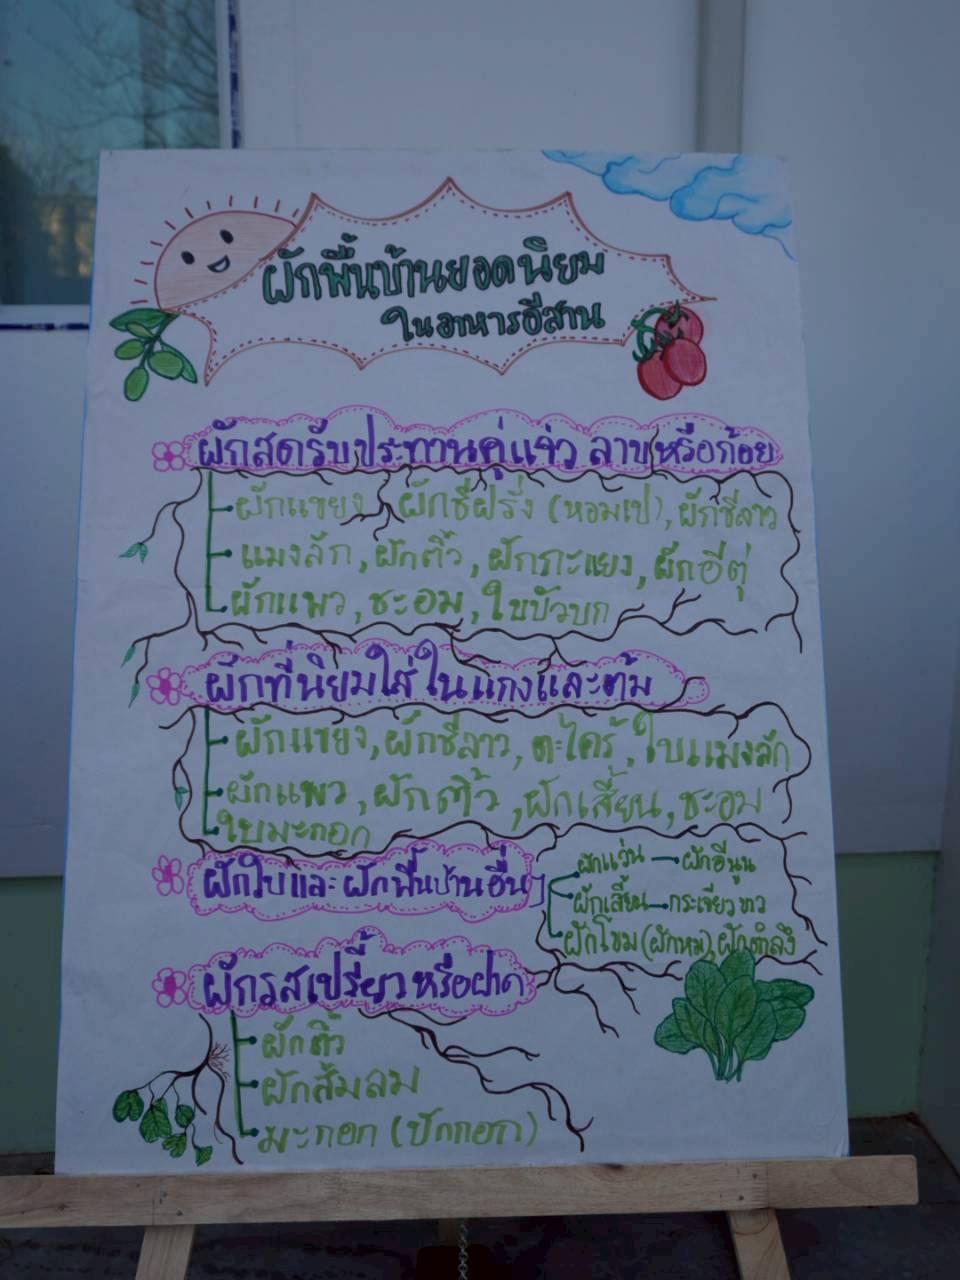 ผักพื้นบ้านยอดนิยม
ในอาหารอีสาน
ผักสดรับประทานคู่แจ่ว ลาบหรือก้อย
ผักแขยง ผักชีฝรั่ง (หอมเป), ผักชีลาว
แมงลัก, ผักติ้ว, ผักกะแยง, ผักอีตู่
ผักแพว, ชะอม, ใบบัวบก
ผักที่นิยมใส่ในแกงและต้ม
ผักแขยง, ผักชีลาว, ตะไคร้, ใบแมงลัก
ผักแพว, ผักติ้ว, ผักเสี้ยน, ชะอม
ใบมะกอก
ผักใบและผักพื้นบ้านอื่นๆ
ผักแว่น – ผักอีนูน
ผักเสี้ยน – กระเจียวขาว
ผักโขม (ผักหม), ผักตำลึง
ผักรสเปรี้ยวหรือฝาด
ผักติ้ว
ผักส้มลม
มะกอก (บักกอก)